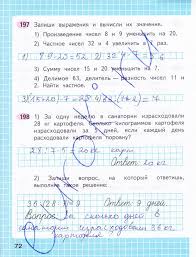 197 Запиши выражения и вычисли их значение.
1) Произведение чисел 8 и 9 уменьшить на 20.
2) Частное чисел 32 и 4 увеличить в раз.
1) 8·9-20=52 2) 32:4
3) Сумму чисел 15 и 20 уменьшить на 7.
4) Делимое 63, делитель – разность чисел 11 и
2. Найти частное.
3) (15+20)-7=28
198 1) За одну неделю в санатории израсходовали
28 кг картофеля. Сколько килограммов картофеля
израсходовали за 5 дней, если каждый день
расходовали картофеля поровну?
28:7·5=20 кг
Ответ 20 кг.
2) Запиши вопрос, на который ответишь,
выполнив такое решение:
Ответ: 9 дней
Вопрос: за сколько дней в
санатории израсходовали 36 кг
картофеля
72